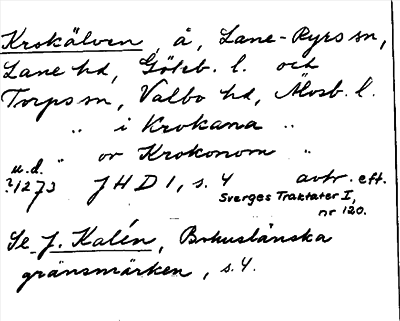 Krokälven, å, Lane-Ryrs sn,
Lane hd, Göteb. l. och
Torps sn, Valbo hd, Älvsb. l.
" i Krokana "
" or Krokonom "
u.d.
?1273 JHD 1, s. 4 avtr. eft.
Sverges Traktater I,
nr 120.
Se J. Kalén, Bohuslänska
gränsmärken, s. 4.